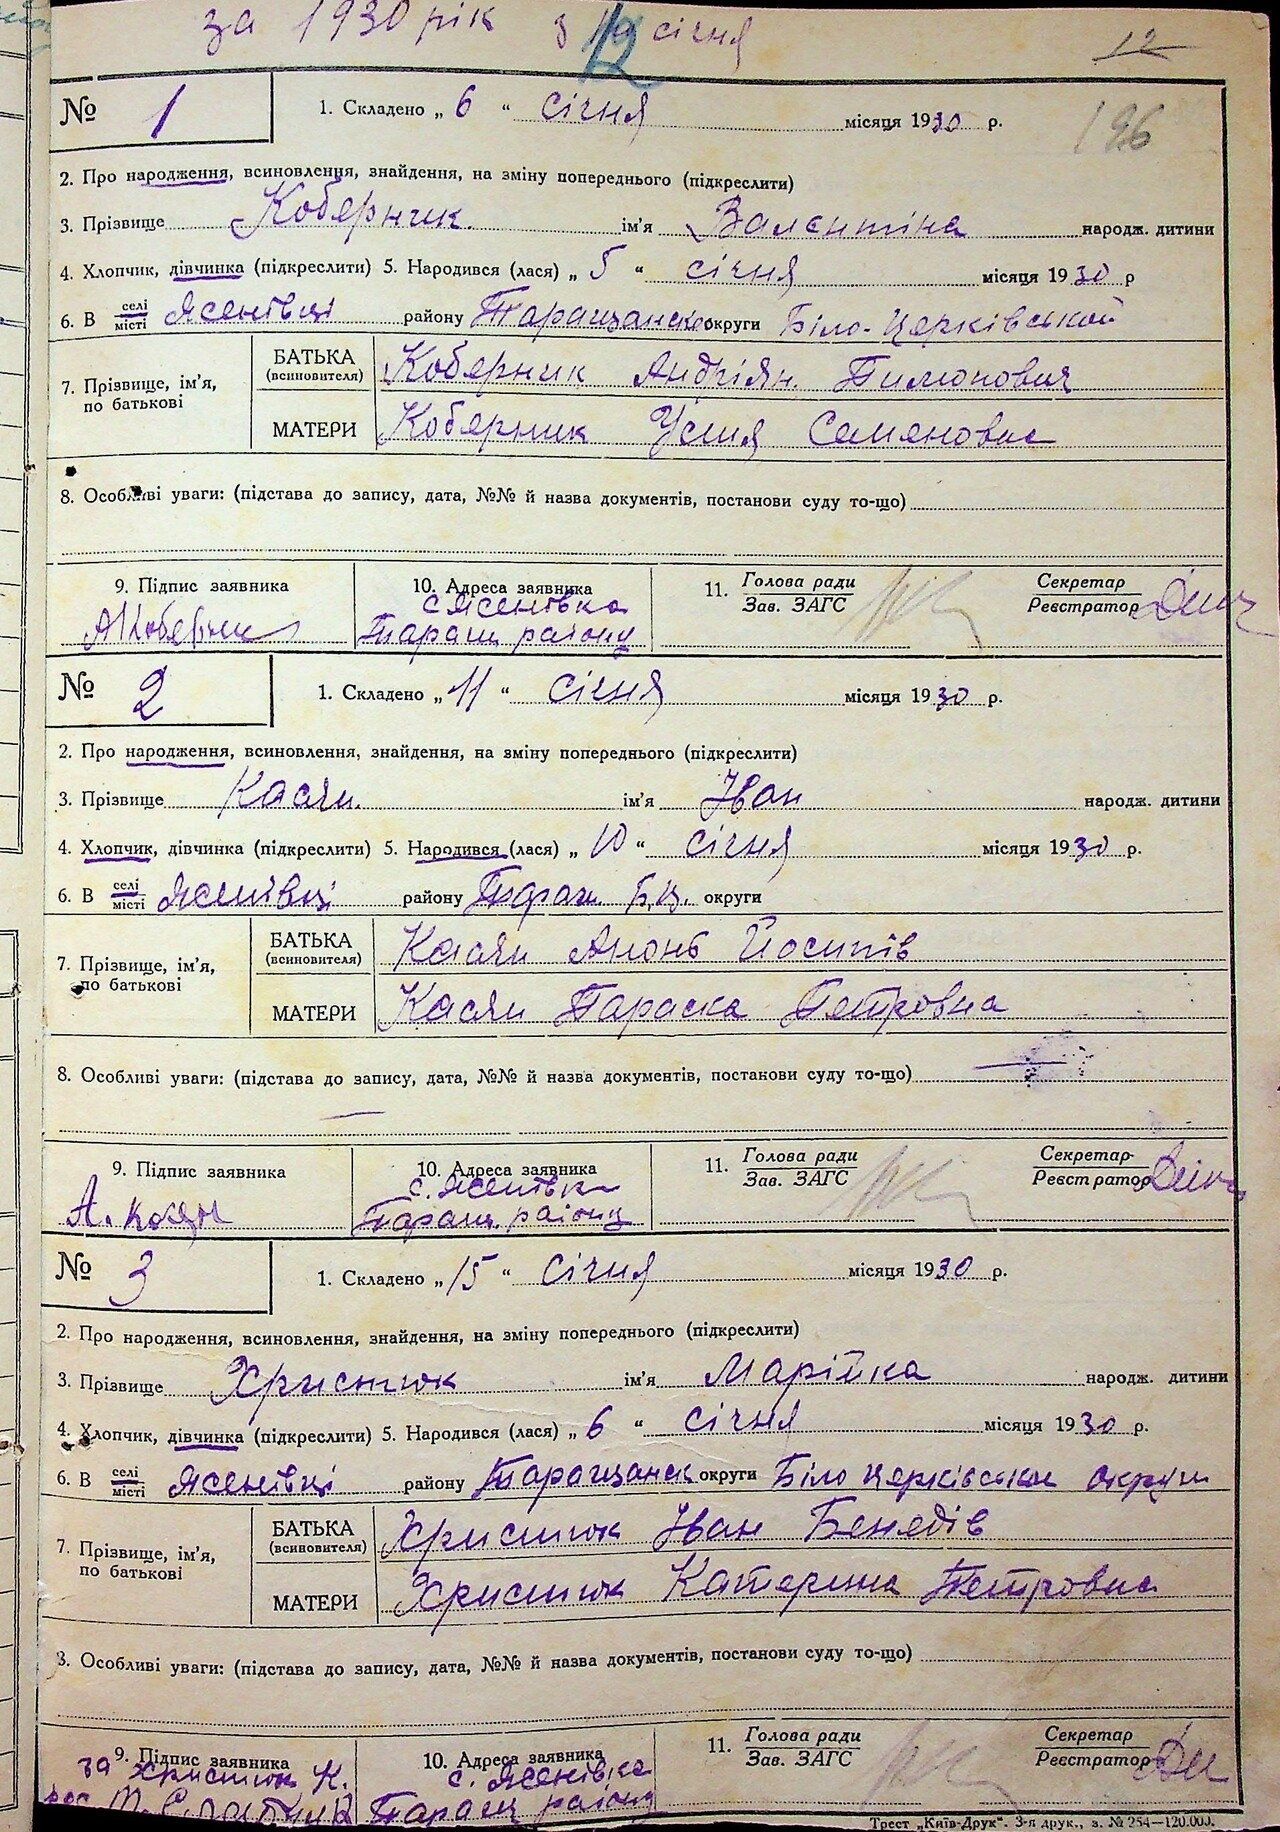 за 1930 рік з січня
12
12
196
№ 1
1. Складено „ 6 “ січня місяця 1930 р.
2. Про народження, всиновлення, знайдення, на зміну попереднього (підкреслити)
3. Прізвище Коберник. ім'я Валєнтіна народж. дитини
4. Хлопчик, дівчинка (підкреслити) 5. Народився (лася) „ 5 “ січня місяця 1930 р
6. В селі/місті Ясенівці району Таращанско округи Біло-Церківської
7. Прізвище, ім'я, по батькові
БАТЬКА (всиновителя) Коберник Андріян Тимонович
МАТЕРИ Коберник Устя Семеновна
8. Особливі уваги: (підстава до запису, дата, №№ й назва документів, постанови суду то-що)
9. Підпис заявника
АКоберник
10. Адреса заявника
с Ясенівка
Таращ району
11. Голова ради
Зав. ЗАГС
Секретар
Реєстратор
№ 2
1. Складено „ 11 “ січня місяця 1930 р.
2. Про народження, всиновлення, знайдення, на зміну попереднього (підкреслити)
3. Прізвище Касян. ім'я Іван народж. дитини
4. Хлопчик, дівчинка (підкреслити) 5. Народився (лася) „ 10 “ січня місяця 1930 р.
6. В селі/місті Ясенівці району Таращ. Б.Ц. округи
7. Прізвище, ім'я, по батькові
БАТЬКА (всиновителя) Касян Йосипів
МАТЕРИ Касян Параска Петровна
8. Особливі уваги: (підстава до запису, дата, №№ й назва документів, постанови суду то-що)
9. Підпис заявника
А. Касян
10. Адреса заявника
с. Ясенівка
Таращ. району
11. Голова ради
Зав. ЗАГС
Секретар
Реєстратор
№ 3
1. Складено „ 15 “ січня місяця 1930 р.
2. Про народження, всиновлення, знайдення, на зміну попереднього (підкреслити)
3. Прізвище Христюк ім'я Марійка народж. дитини
4. Хлопчик, дівчинка (підкреслити) 5. Народився (лася) „ 6 “ січня місяця 1930 р.
6. В селі/місті Ясенівці району Таращанск округи Біло церківськи округи
7. Прізвище, ім'я, по батькові
БАТЬКА (всиновителя) Христюк Іван Бенедів
МАТЕРИ Христюк Катерина Петровна
8. Особливі уваги: (підстава до запису, дата, №№ й назва документів, постанови суду то-що)
9. Підпис заявника
за Христюк К.
10. Адреса заявника
с. Ясенівка
Таращ району
11. Голова ради
Зав. ЗАГС
Секретар
Реєстратор
Трест „Київ-Друк“. 3-я друк., з. № 254—120.000.